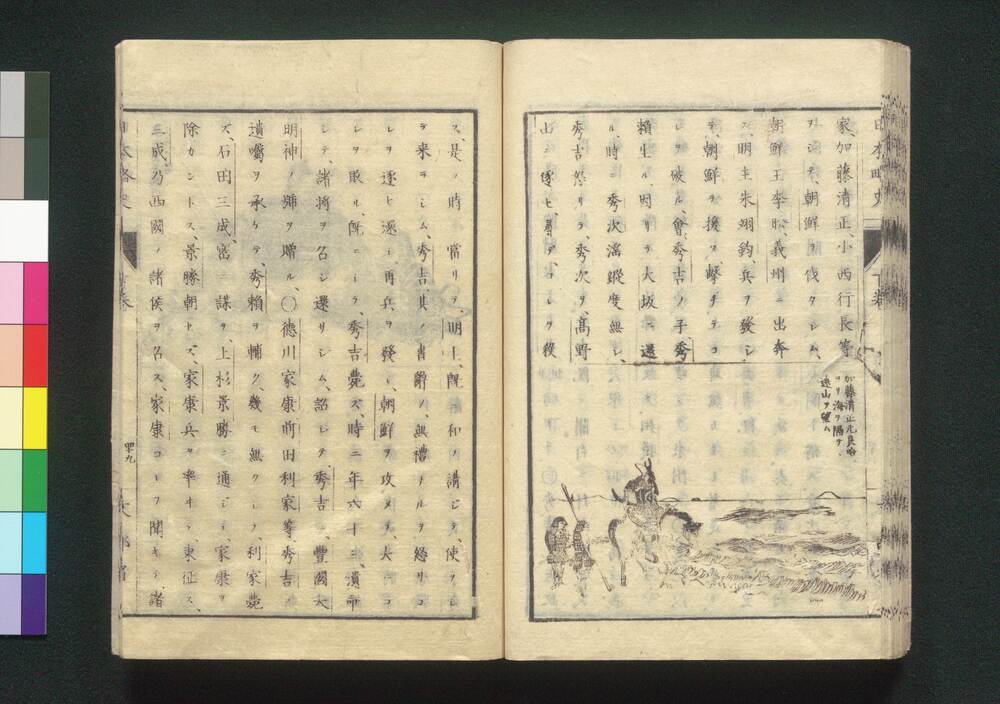 家、加藤清正、小西行長等
ヲシテ、朝鮮ヲ伐タシム、
朝鮮王李昖、義州ニ出奔
ス、明主朱翊鈞、兵ヲ發シ
テ、朝鮮ヲ援フ、撃チテコ
レヲ破ル、會秀吉ノ子、秀
頼生ル、因リテ大坂ニ還
ル、時ニ秀次淫縱度無シ、
秀吉怒リテ、秀次ヲ高野
山ニ逐ヒ、尋デコレヲ殺
加藤清正兀良哈
ヨリ海ヲ隔テ、
遠山ヲ望ム
ス、是ノ時ニ當リテ、明主、既ニ和ヲ講ジテ、使ヲシ
テ来ラシム、秀吉、其ノ書辭ノ、無禮ナルヲ怒リ、コ
レヲ逐ヒ還シ、再兵ヲ發シ、朝鮮ヲ攻メテ、大ニコ
レヲ敗ル、既ニシテ、秀吉薨ズ、時ニ年六十三、遺命
シテ、諸將ヲ召シ還サシム、詔シテ、秀吉ニ、豊國大
明神ノ號ヲ贈ル、〇德川家康、前田利家等、秀吉ノ
遺囑ヲ承ケテ、秀頼ヲ輔ク、幾モ無クシテ、利家薨
ズ、石田三成、密ニ謀ヲ、上杉景勝ニ通ジテ、家康ヲ
除カントス、景勝朝セズ、家康兵ヲ率ヰテ、東征ス、
三成、乃西國ノ諸侯ヲ召ス、家康コレヲ聞キテ、諸
日本略史
下巻
四十九